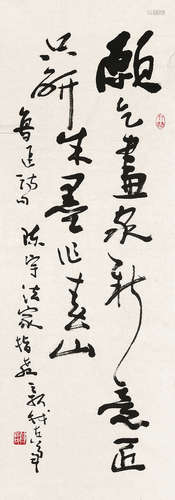 願乞畫家新意匠
只研朱墨作春山
魯迅詩句 陈宇法家指教 
左笔